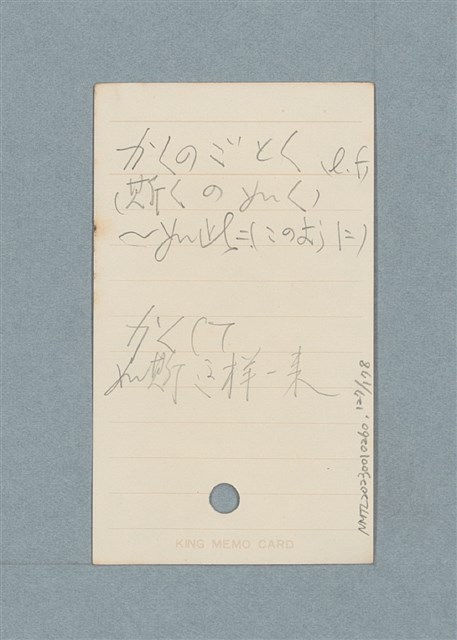 かくのごとく (l.f)
(斯くの如く)
～如此=(このように)
かくして
如斯 这樣一来
KING MEMO CARD
NMTL20230010260, 121/178